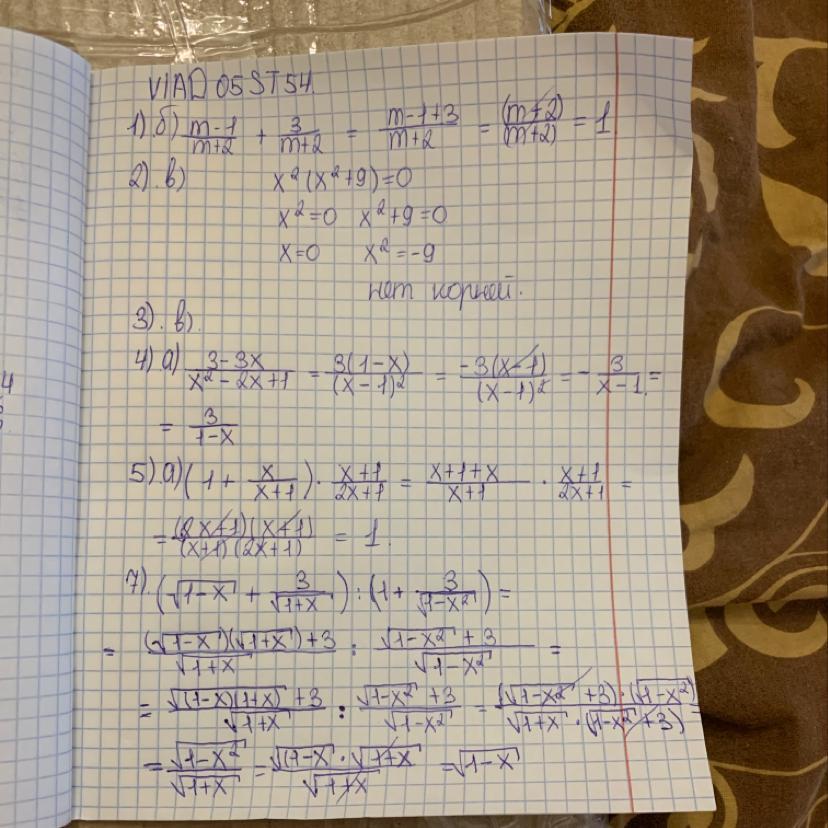 VIAD 05 ST 54
1). б) (m-1)/(m+2) + 3/(m+2) = (m-1+3)/(m+2) = (m+2)/(m+2) = 1
2). в) x²(x²+9)=0
x²=0 x²+9=0
x=0 x²=-9
нет корней.
3). в).
4) а) (3-3x)/(x²-2x+1) = 3(1-x)/(x-1)² = -3(x-1)/(x-1)² = -3/(x-1) =
= 3/(1-x)
5). а) (1 + x/(x+1)) · (x+1)/(2x+1) = (x+1+x)/(x+1) · (x+1)/(2x+1) =
= (2x+1)(x+1)/(x+1)(2x+1) = 1.
7). (√(1-x) + 3/√(1+x)) : (1 + 3/√(1-x²)) =
= ((√(1-x))(√(1+x))+3)/√(1+x) : (√(1-x²)+3)/√(1-x²) =
= (√((1-x)(1+x))+3)/√(1+x) : (√(1-x²)+3)/√(1-x²) = (√(1-x²)+3)·(√(1-x²))/√(1+x)·(√(1-x²)+3) =
= √(1-x²)/√(1+x) = √(1-x)·√(1+x)/√(1+x) = √(1-x)